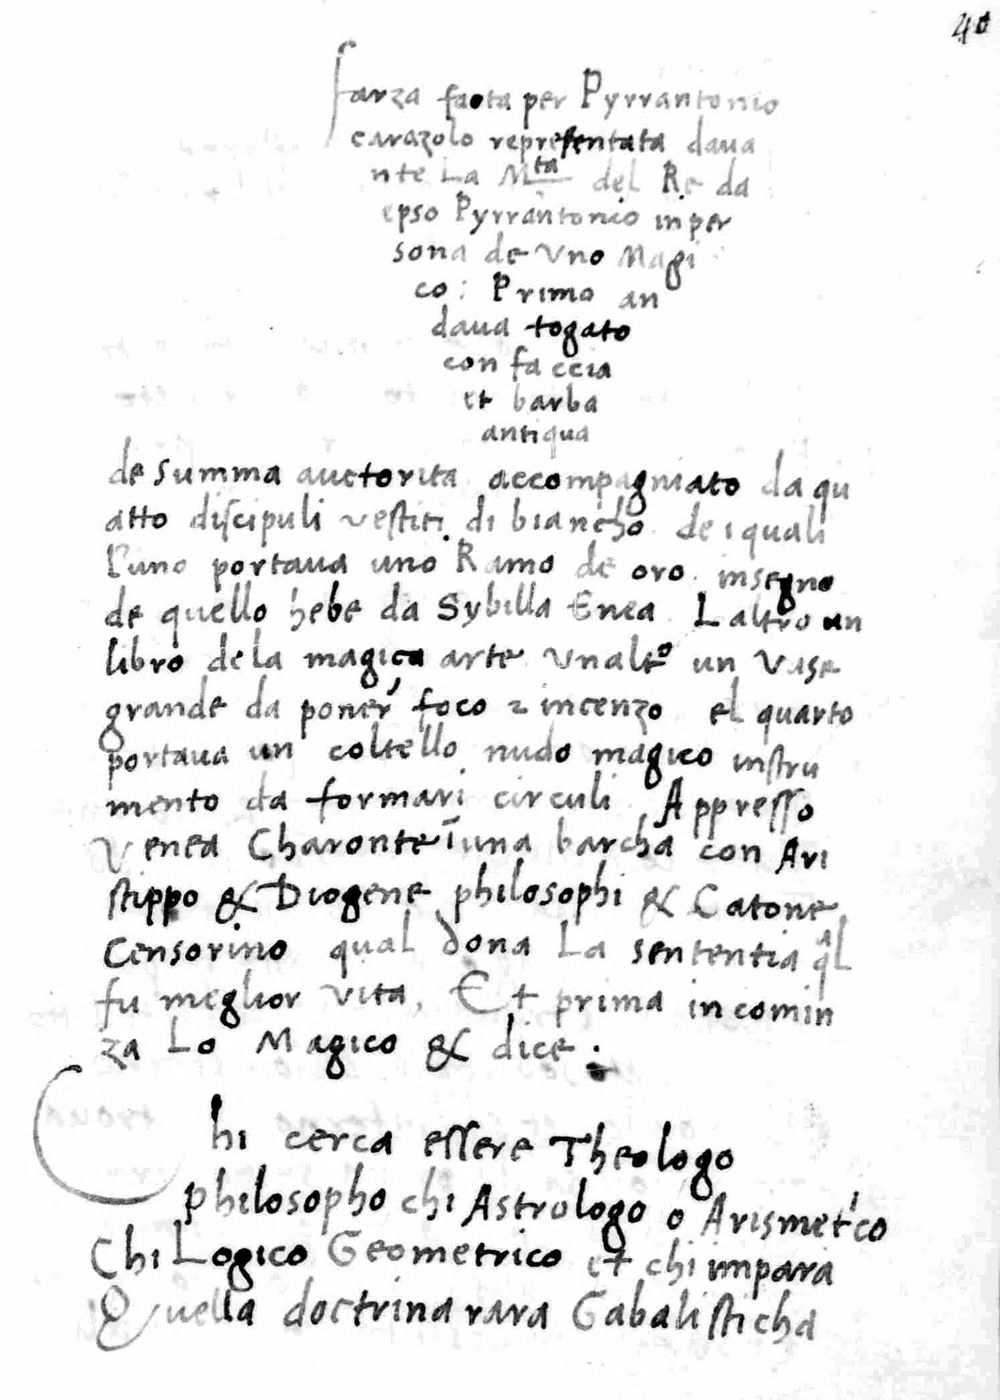 40
farza facta per Pyrrantonio
carazolo representata daua
nte La M.ta del Re da
epso Pyrrantonio in per
sona de Vno Magi
co: Primo an
daua togato
con faccia
et barba
antiqua
de summa auctorita accompagniato da qu
atto discipuli vestiti di biancho de i quali
l'uno portaua uno Ramo de oro insegno
de quello hebe da Sybilla Enea L altro un
libro dela magica arte vnaltro un Vase
grande da poner foco & incenzo el quarto
portaua un coltello nudo magico instru
mento da formari circuli Appresso
Venea Charonte ī una barcha con Ari
stippo & Diogene philosophi & Catone
Censorino qual dona La sententia qal
fu meglior vita, Et prima in comin
za Lo Magico & dice :
Chi cerca essere Theologo
philosopho chi Astrologo o Arismet'co
Chi Logico Geometrico et chi impara
Quella doctrina rara Gabalisticha